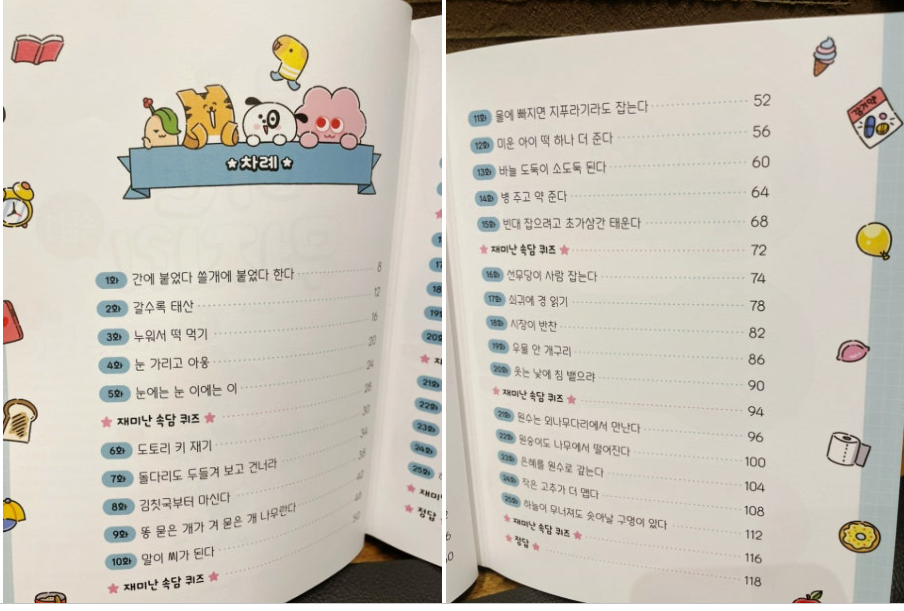 ★차례★
1화 간에 붙었다 쓸개에 붙었다 한다 8
2화 갈수록 태산 12
3화 누워서 떡 먹기 16
4화 눈 가리고 아웅 20
5화 눈에는 눈 이에는 이 24
★ 재미난 속담 퀴즈 ★ 28
6화 도토리 키 재기 30
7화 돌다리도 두들겨 보고 건너라 34
8화 김칫국부터 마신다 38
9화 똥 묻은 개가 겨 묻은 개 나무란다 42
10화 말이 씨가 된다 46
★ 재미난 속담 퀴즈 ★ 50
20화
21화
22화
23화
24화
25화
★ 정답
11화 물에 빠지면 지푸라기라도 잡는다 52
12화 미운 아이 떡 하나 더 준다 56
13화 바늘 도둑이 소도둑 된다 60
14화 병 주고 약 준다 64
15화 빈대 잡으려고 초가삼간 태운다 68
★ 재미난 속담 퀴즈 ★ 72
16화 선무당이 사람 잡는다 74
17화 쇠귀에 경 읽기 78
18화 시장이 반찬 82
19화 우물 안 개구리 86
20화 웃는 낯에 침 뱉으랴 90
★ 재미난 속담 퀴즈 ★ 94
21화 원수는 외나무다리에서 만난다 96
22화 원숭이도 나무에서 떨어진다 100
23화 은혜를 원수로 갚는다 104
24화 작은 고추가 더 맵다 108
25화 하늘이 무너져도 솟아날 구멍이 있다 112
★ 재미난 속담 퀴즈 ★ 116
★ 정답 ★ 118
감기약